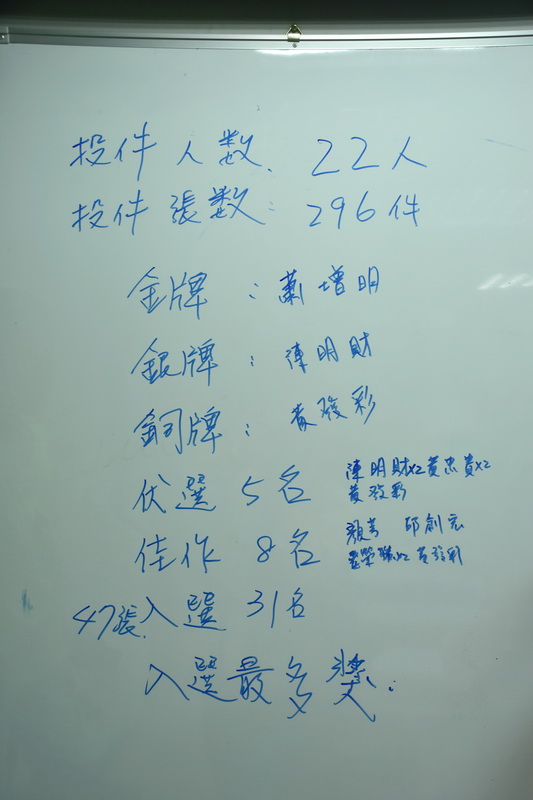 投件人数. 22人
投件張数: 296件
金牌:蕭增明
銀牌:陳明財
銅牌:黃發彩
伏選 5名 陳明財x2黃忠貴x2
黃發彩
佳作 8名
黃發彩
47張.入選 31名
入選最多獎: